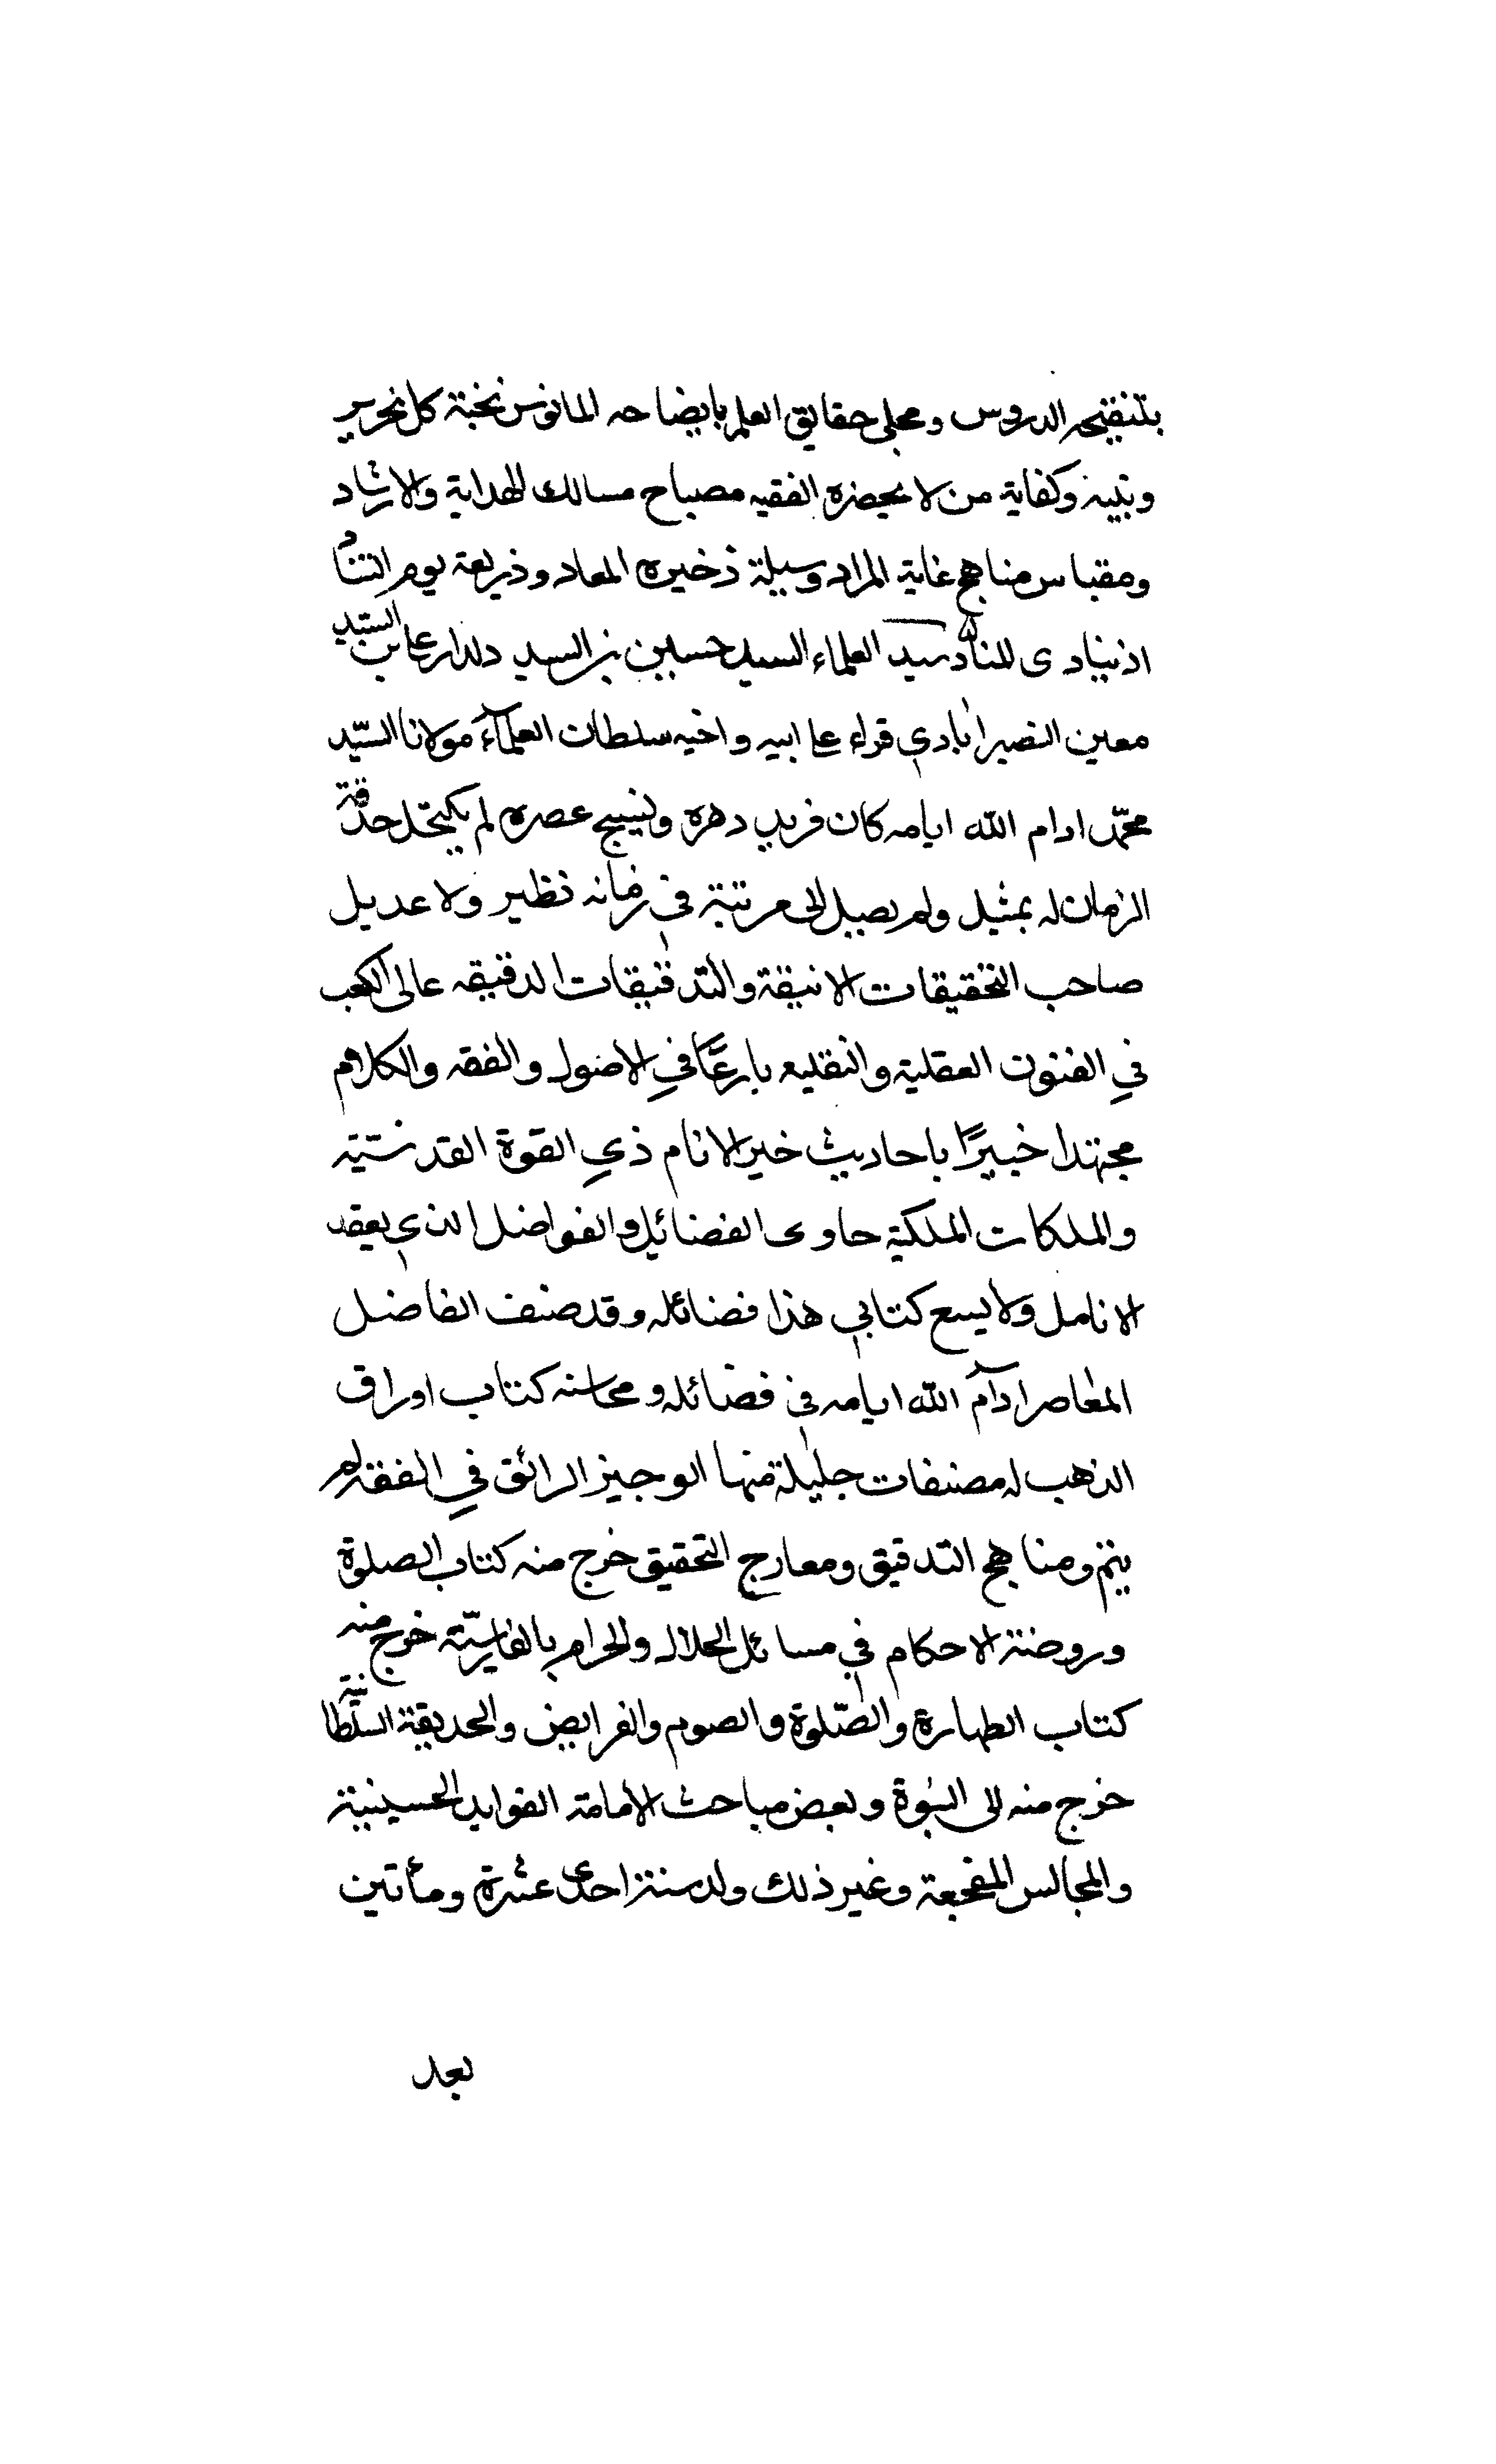 بتنقيحه الدروس ومجلى حقايق العلم بايضاحه المانوس نخبة كل نحرير
ونبيه وكفاية من لا يحضره الفقيه مصباح مسالك الهداية والارشاد
ومقباس مناهج غاية المراد وسيلة ذخيره المعاد وذريعة يوم التناد
اذ ينادى المناد سيد العلماء السيد حسين بن السيد دلدار على بن السيد
معين النصيرابادي قراء على ابيه واخيه سلطان العلمآء مولانا السيّد
محمّد ادام الله ايامه كان فريد دهره ونسيج عصره لم يكتحل حدقة
الزمان له بمثيل ولم يصل الى مرتبة في زمانه نظير ولا عديل
صاحب التحقيقات الانيقة والتدقيقات الدقيقه عالى الكعب
في الفنون العقلية والنقليه بارعًا في الاصول والفقه والكلام
مجتهدا خبيرًا باحاديث خير الانام ذي القوة القدسيّة
والملكات الملكية حاوى الفضائل والفواضل الذي يعقد
الانامل ولا يسع كتابي هذا فضائله وقد صنف الفاضل
المعاصر ادآم الله ايامه في فضائله ومحاسنه كتاب اوراق
الذهب له مصنفات جليلة منها الوجيز الرائق في الفقه لم
يتم ومناهج التدقيق ومعارج التحقيق خرج منه كتاب الصلوة
وروضة الاحكام في مسائل الحلال والحرام بالفارسيّة خرج منه
كتاب الطهارة والصّلوة والصوم والفرايض والحديقة السلّطانيّة
خرج منه الى النبوة وبعض مباحث الأمامة الفوايد الحسينية
والمجالس المفجعة وغير ذلك ولد سنة احدى عشرة ومأتين
بعد